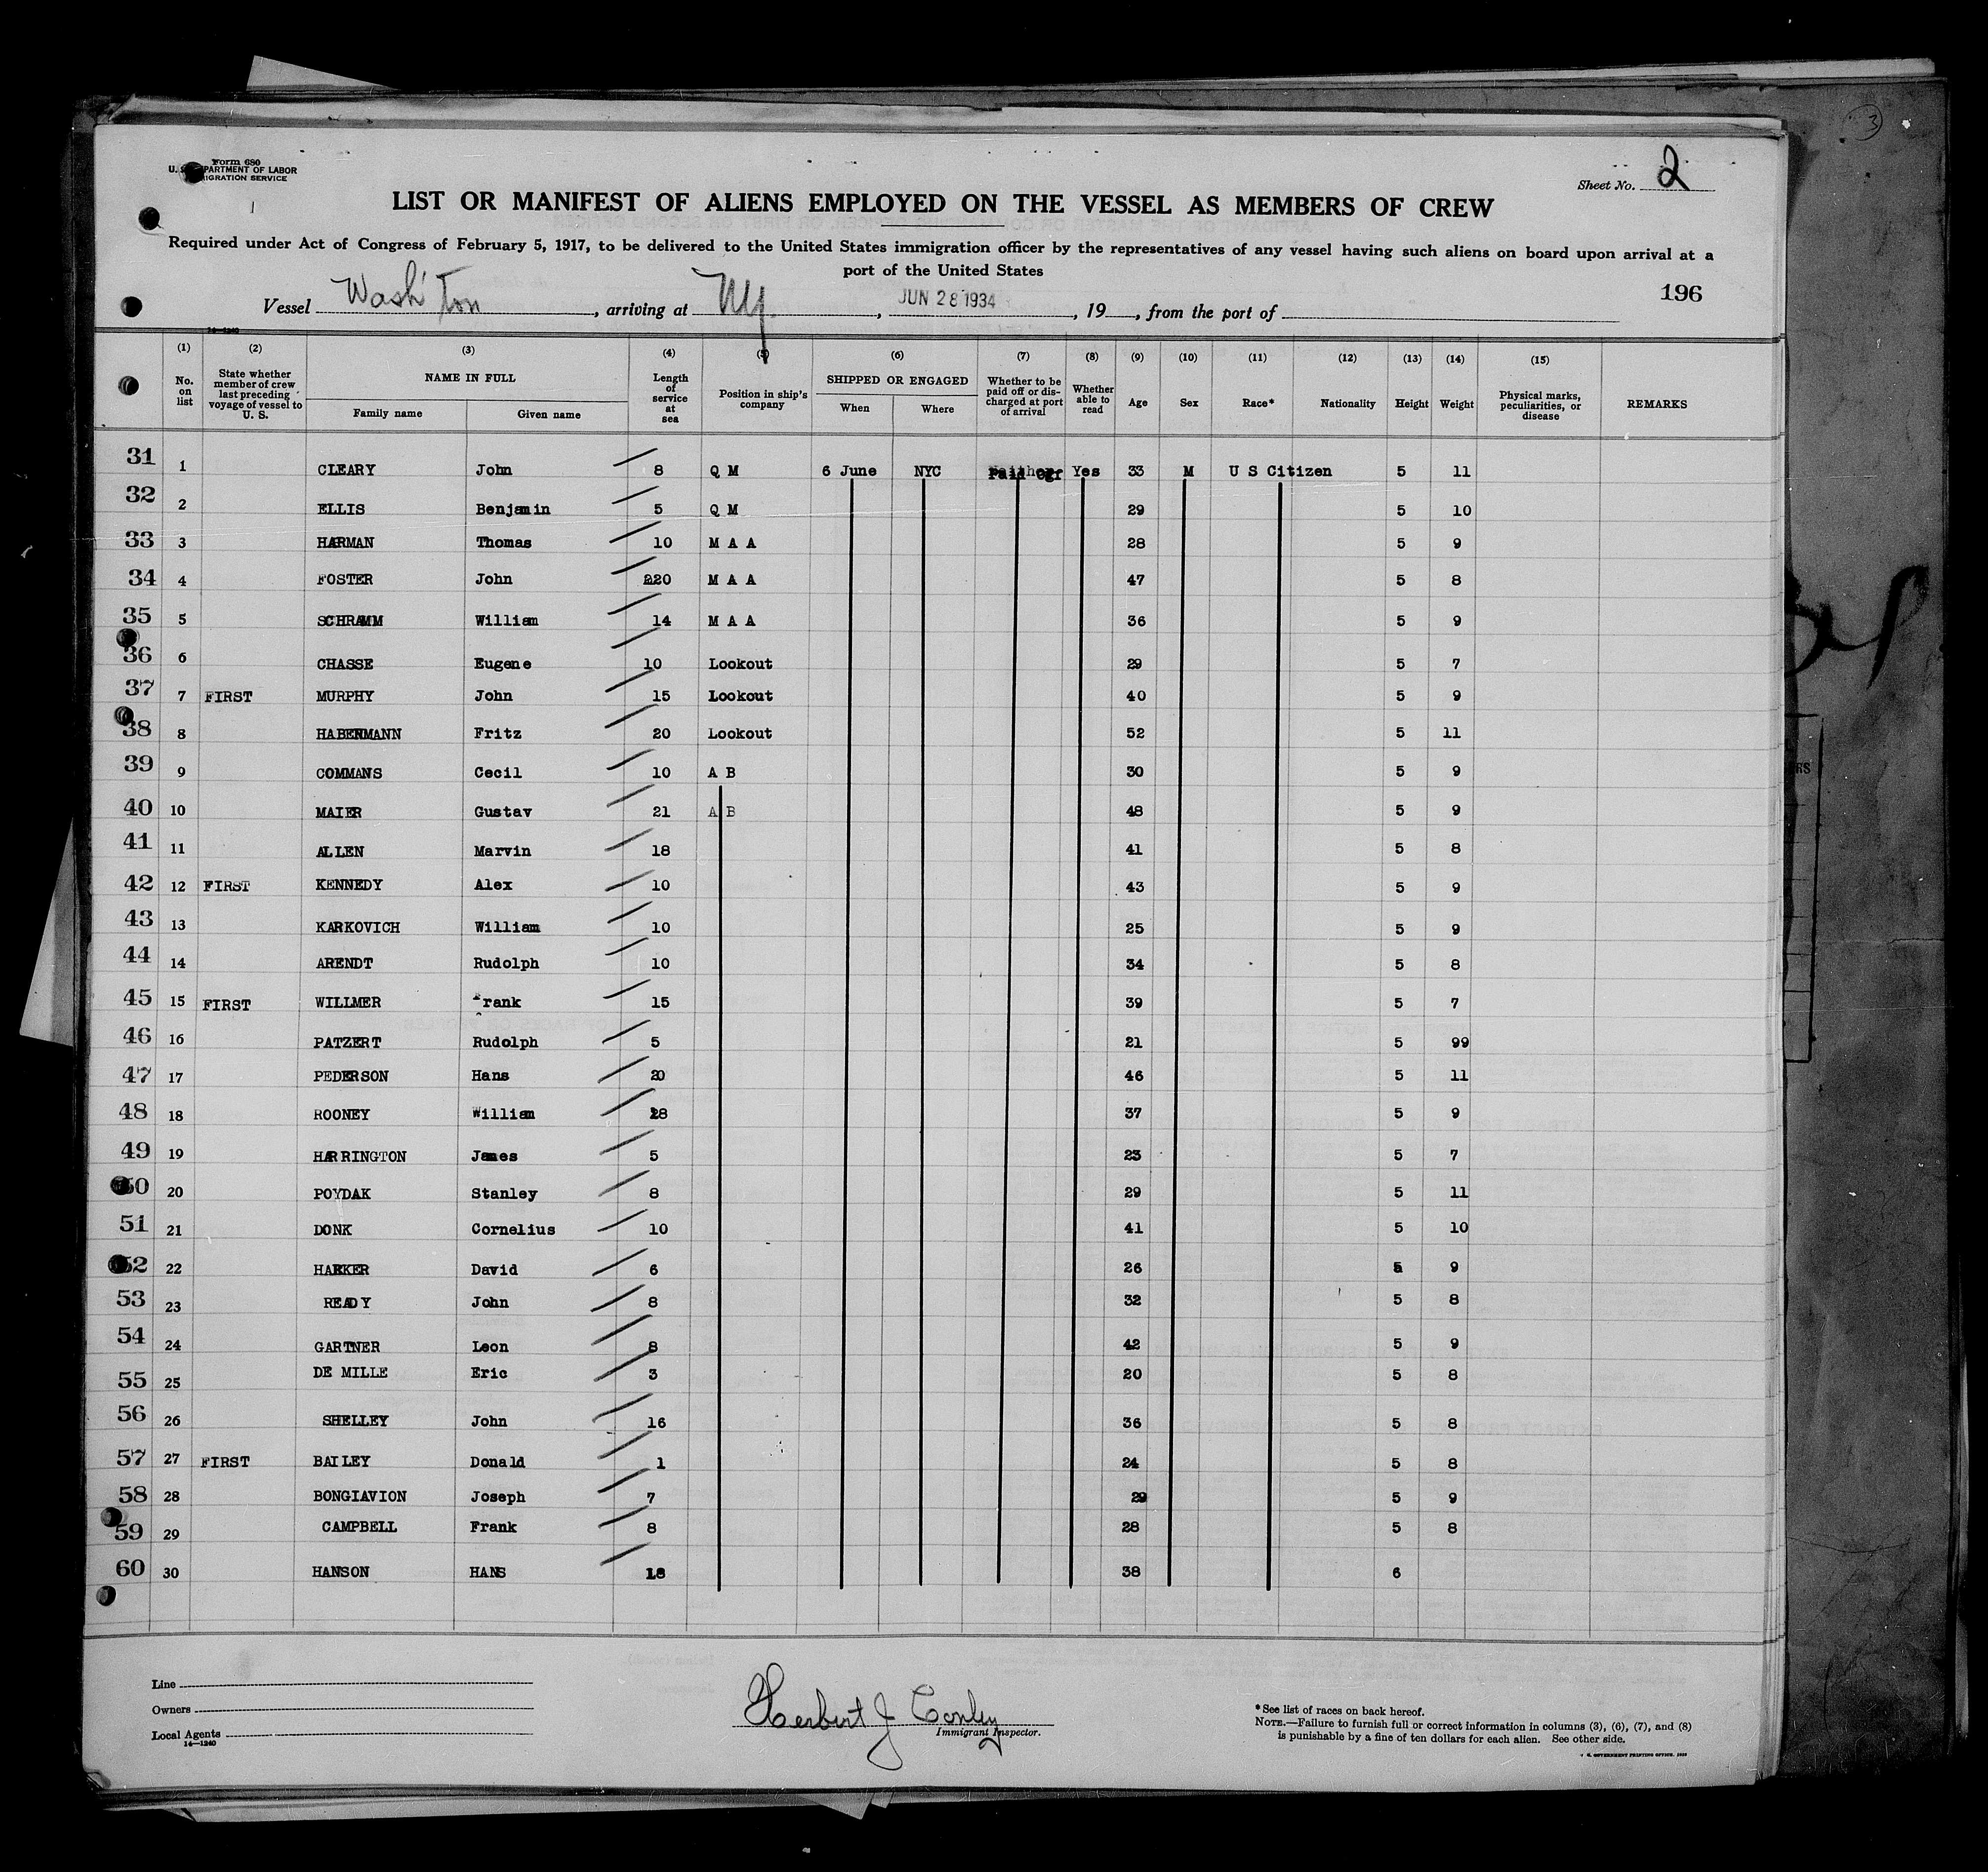 Form 680
U. S. DEPARTMENT OF LABOR
IMMIGRATION SERVICE
Sheet No. 2
LIST OR MANIFEST OF ALIENS EMPLOYED ON THE VESSEL AS MEMBERS OF CREW
Required under Act of Congress of February 5, 1917, to be delivered to the United States immigration officer by the representatives of any vessel having such aliens on board upon arrival at a
port of the United States
196
Vessel Wash'ton, arriving at NY, JUN 28 1934, 19 , from the port of
14—1240
(1) (2) (3) (4) (5) (6) (7) (8) (9) (10) (11) (12) (13) (14) (15)
No. on list
State whether member of crew last preceding voyage of vessel to U. S.
NAME IN FULL
Family name Given name
Length of service at sea
Position in ship's company
SHIPPED OR ENGAGED
When Where
Whether to be paid off or discharged at port of arrival
Whether able to read
Age Sex Race* Nationality Height Weight
Physical marks, peculiarities, or disease
REMARKS
31 1 CLEARY John 8 Q M 6 June NYC Paid Off Yes 33 M U S Citizen 5 11
32 2 ELLIS Benjamin 5 Q M 29 5 10
33 3 HARMAN Thomas 10 M A A 28 5 9
34 4 FOSTER John 220 M A A 47 5 8
35 5 SCHRAMM William 14 M A A 36 5 9
36 6 CHASSE Eugene 10 Lookout 29 5 7
37 7 FIRST MURPHY John 15 Lookout 40 5 9
38 8 HABENMANN Fritz 20 Lookout 52 5 11
39 9 COMMANS Cecil 10 A B 30 5 9
40 10 MAIER Gustav 21 A B 48 5 9
41 11 ALLEN Marvin 18 41 5 8
42 12 FIRST KENNEDY Alex 10 43 5 9
43 13 KARKOVICH William 10 25 5 9
44 14 ARENDT Rudolph 10 34 5 8
45 15 FIRST WILLMER Frank 15 39 5 7
46 16 PATZERT Rudolph 5 21 5 99
47 17 PEDERSON Hans 20 46 5 11
48 18 ROONEY William 18 37 5 9
49 19 HARRINGTON James 5 23 5 7
50 20 POYDAK Stanley 8 29 5 11
51 21 DONK Cornelius 10 41 5 10
52 22 HARKER David 6 26 5 9
53 23 READY John 8 32 5 8
54 24 GARTNER Leon 8 42 5 9
55 25 DE MILLE Eric 3 20 5 8
56 26 SHELLEY John 16 36 5 8
57 27 FIRST BAILEY Donald 1 24 5 8
58 28 BONGIAVION Joseph 7 29 5 9
59 29 CAMPBELL Frank 8 28 5 8
60 30 HANSON HANS 18 38 6
Line
Owners
Local Agents
14—1240
Herbert J Conley
Immigrant Inspector.
* See list of races on back hereof.
NOTE.—Failure to furnish full or correct information in columns (3), (6), (7), and (8)
is punishable by a fine of ten dollars for each alien. See other side.